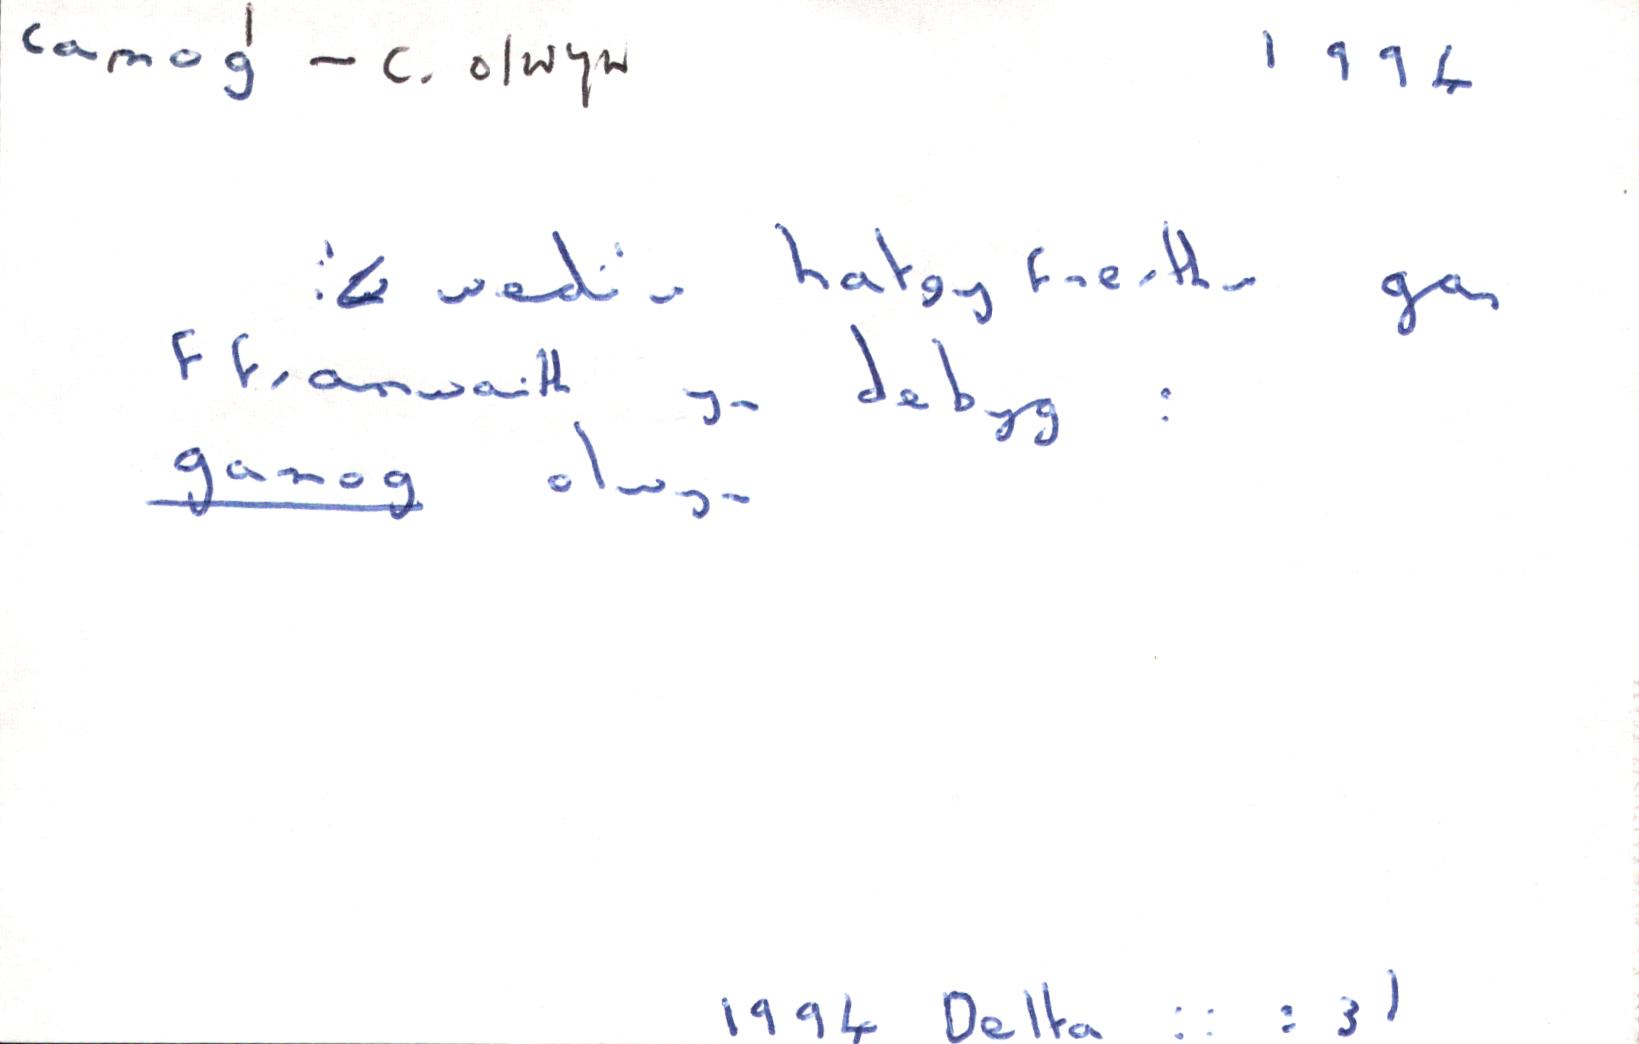 camog – c. olwyn 1994
wedi'u hatgyfnerthu gan
fframwaith yn debyg :
gamog olwyn
1994 Delta :: : 31